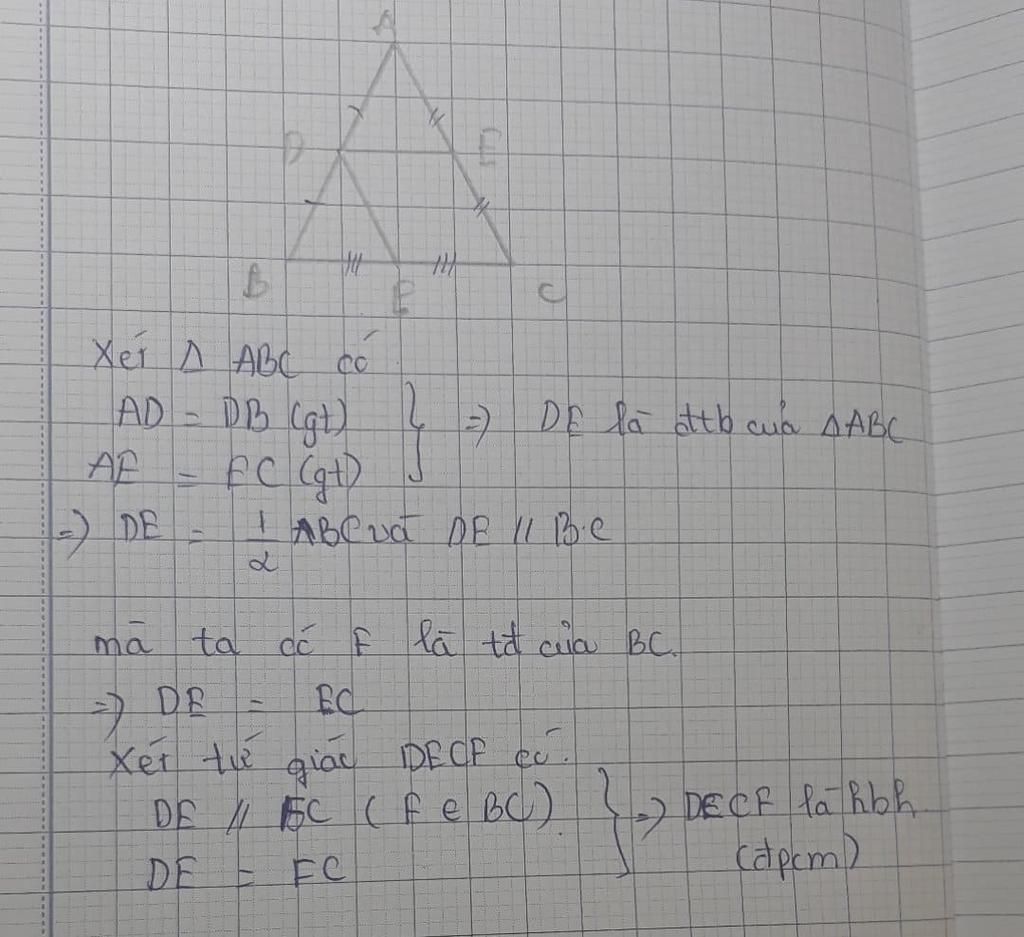 A
D E
B F C
Xét Δ ABC có
AD = DB (gt)
AE = EC (gt)
} => DE là đttb của ΔABC
=> DE = 1/2 ABC và DE // BC
mà ta có F là tđ của BC.
=> DE = FC
Xét tứ giác DECF có:
DE // FC (F ∈ BC)
DE = FC
} => DECF là hbh
(đpcm)